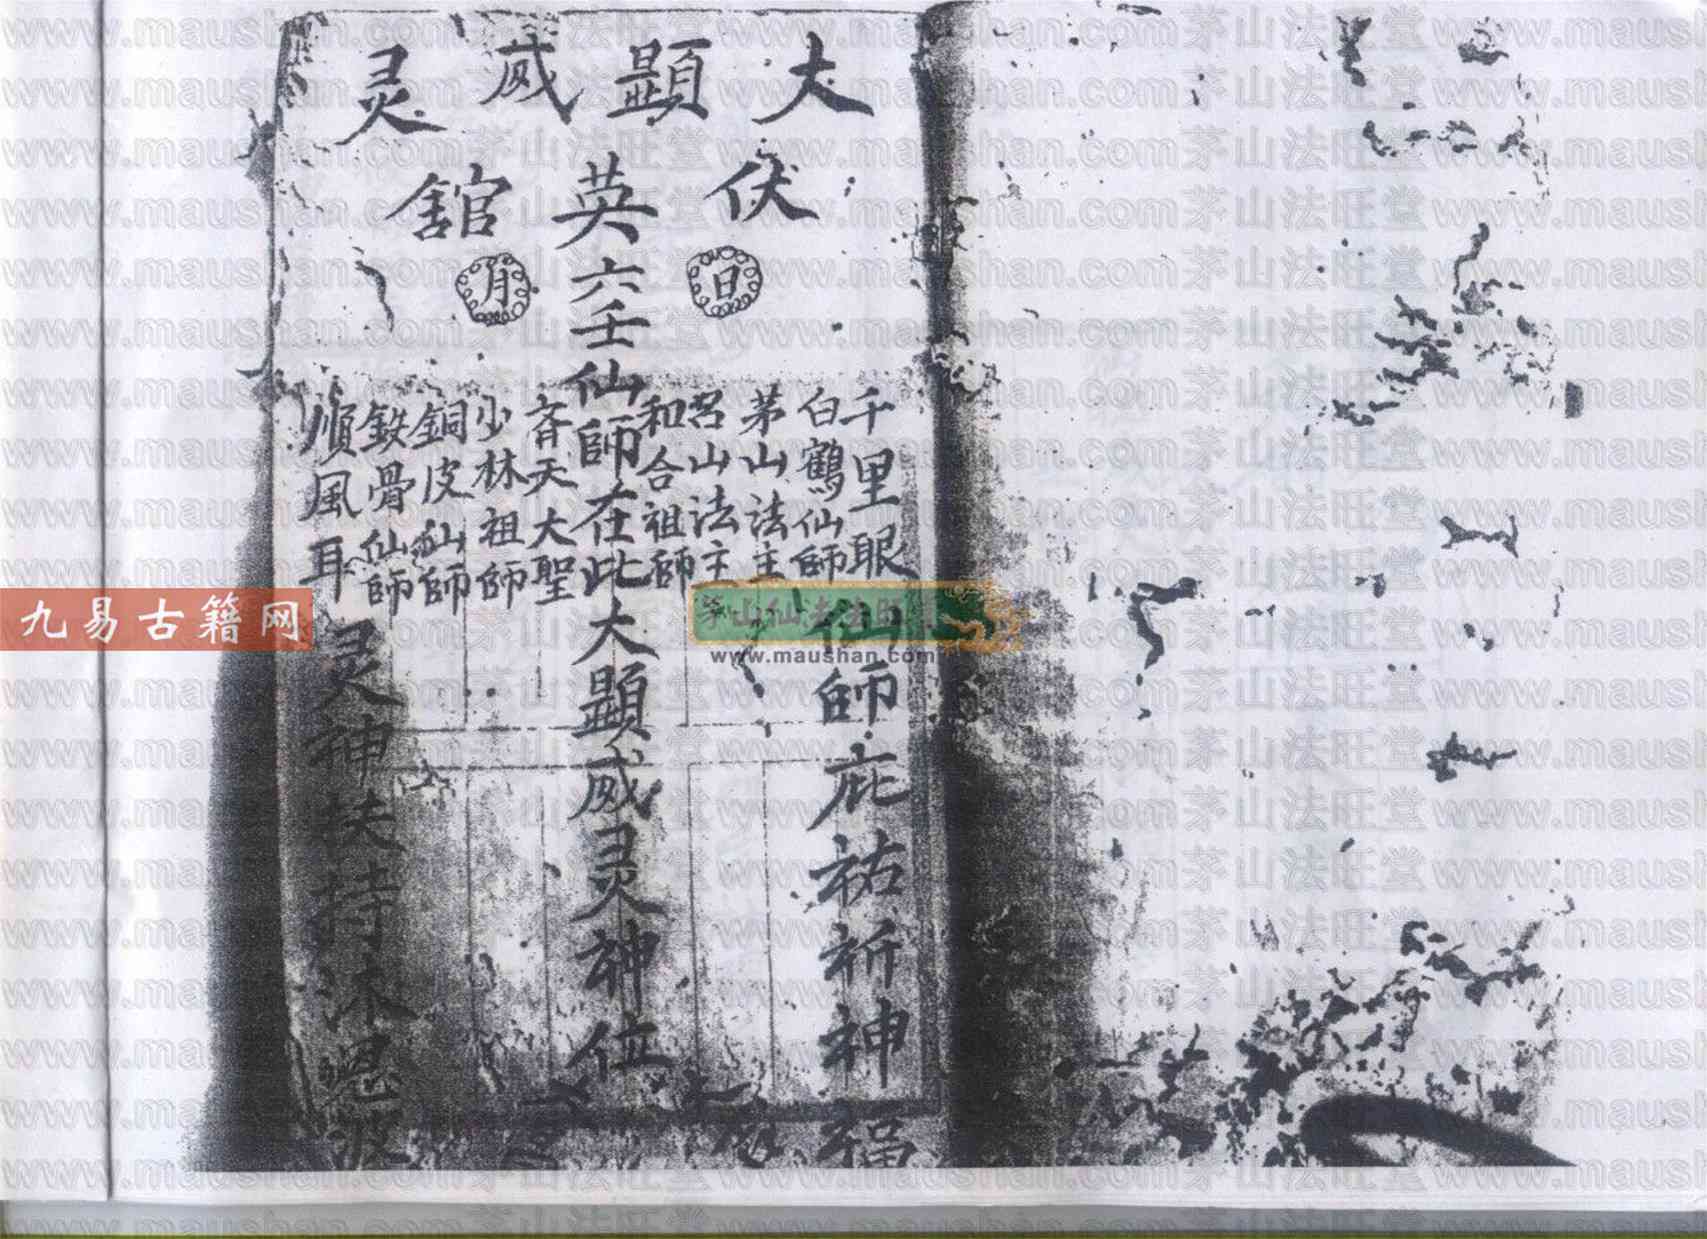 大顯威灵
伏英舘
日
月
千里眼
白鶴仙師
茅山法主
呂山法主
和合祖師
六壬仙師在此大顯威灵神位
斉天大聖
少林祖師
銅皮仙師
鉄骨仙師
順風耳
仙師庇祐祈神福
灵神扶持沐恩
九易古籍网
茅山仙法法旺堂
www.maushan.com
www.maushan.com茅山法旺堂